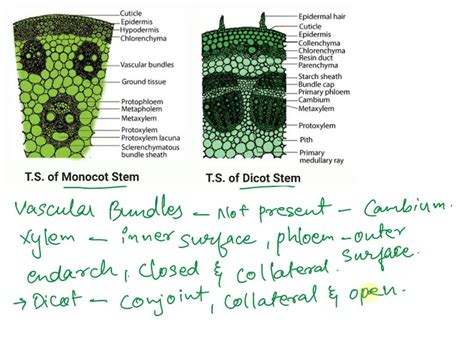 Cuticle
Epidermis
Hypodermis
Chlorenchyma
Vascular bundles
Ground tissue
Protophloem
Metapholem
Metaxylem
Protoxylem
Protoxylem lacuna
Sclerenchymatous
bundle sheath
T.S. of Monocot Stem
Epidermal hair
Cuticle
Epidermis
Collenchyma
Chlorenchyma
Resin duct
Parenchyma
Starch sheath
Bundle cap
Primary phloem
Cambium
Metaxylem
Protoxylem
Pith
Primary
medullary ray
T.S. of Dicot Stem
Vascular Bundles - Not present - Cambium.
Xylem - inner surface, phloem - outer
surface.
endarch, closed & collateral.
→ Dicot - Conjoint, collateral & open.